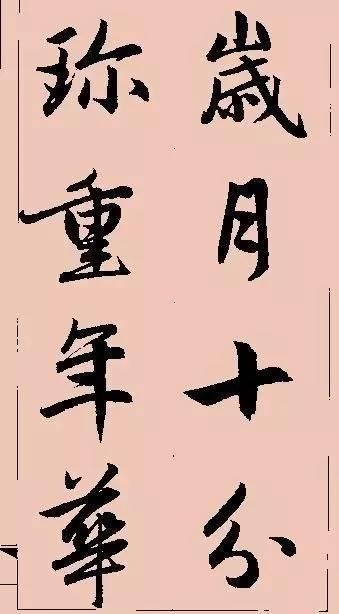 歲月十分
珍重年華